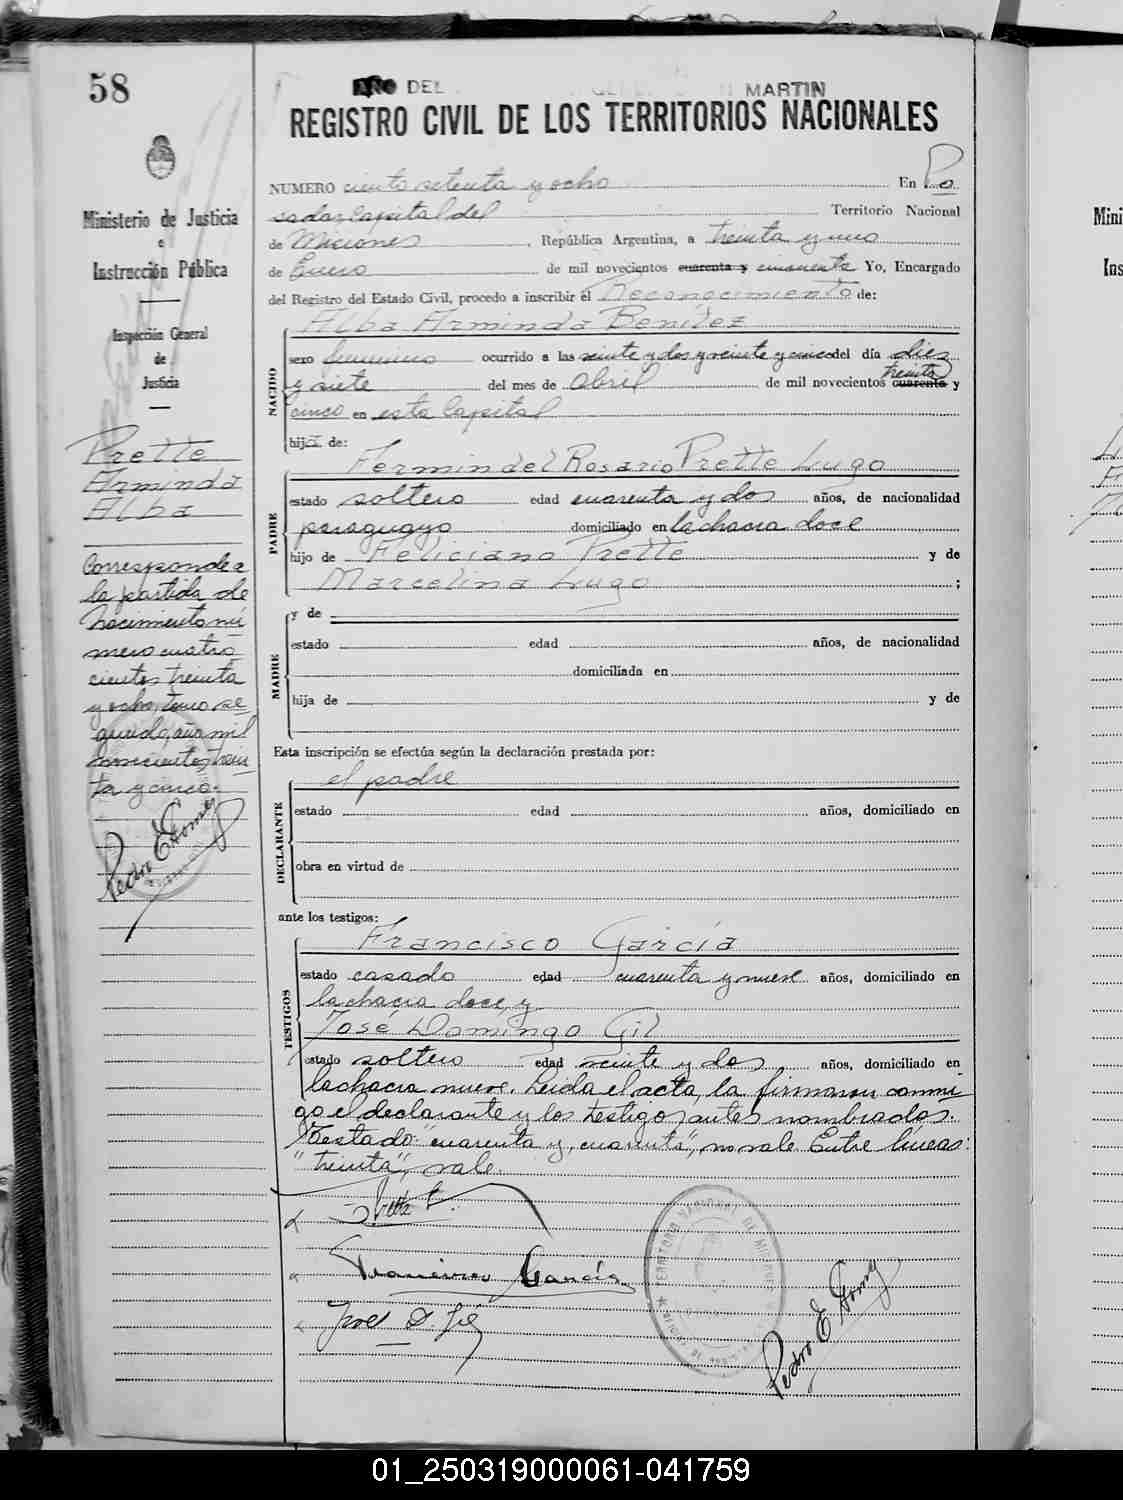 58
AÑO DEL GENERAL SAN MARTIN
REGISTRO CIVIL DE LOS TERRITORIOS NACIONALES
NUMERO ciento setenta y ocho En Po
sadas Capital del Territorio Nacional
de Misiones, República Argentina, a treinta y uno
de Enero de mil novecientos cuarenta y cincuenta Yo, Encargado
del Registro del Estado Civil, procedo a inscribir el Reconocimiento de:
Alba Arminda Benítez
NACIDO
sexo femenino ocurrido a las veinte y dos y veinte y cinco del día diez
y siete del mes de Abril de mil novecientos cuarenta y
treinta
cinco en esta Capital
hija de:
Fermin del Rosario Prette Lugo
PADRE
estado soltero edad cuarenta y dos años, de nacionalidad
paraguayo domiciliado en la chacra doce
hijo de Feliciano Prette y de
Marcelina Lugo ;
MADRE
y de
estado edad años, de nacionalidad
domiciliada en
hija de y de
Esta inscripción se efectúa según la declaración prestada por:
el padre
DECLARANTE
estado edad años, domiciliado en
obra en virtud de
ante los testigos:
Francisco García
TESTIGOS
estado casado edad cuarenta y nueve años, domiciliado en
la chacra doce, y
José Domingo Gil
estado soltero edad veinte y dos años, domiciliado en
la chacra nueve. Leida el acta, la firmaron conmi
go el declarante y los testigos antes nombrados.
Testado: "cuarenta y, cuarenta", no vale. Entre líneas:
"treinta", vale.
Prette F.
Francisco García
José D. Gil
Pedro E.
Ministerio de Justicia
e
Instrucción Pública
Inspección General
de
Justicia
Prette
Arminda
Alba
Corresponde a
la partida de
Nacimiento nú
mero cuatro
cientos treinta
y ocho, tomo se
gundo, año mil
novecientos trein
ta y cinco.
Pedro E.
TERRITORIO NACIONAL DE MISIONES
Mini
Ins
01_250319000061-041759